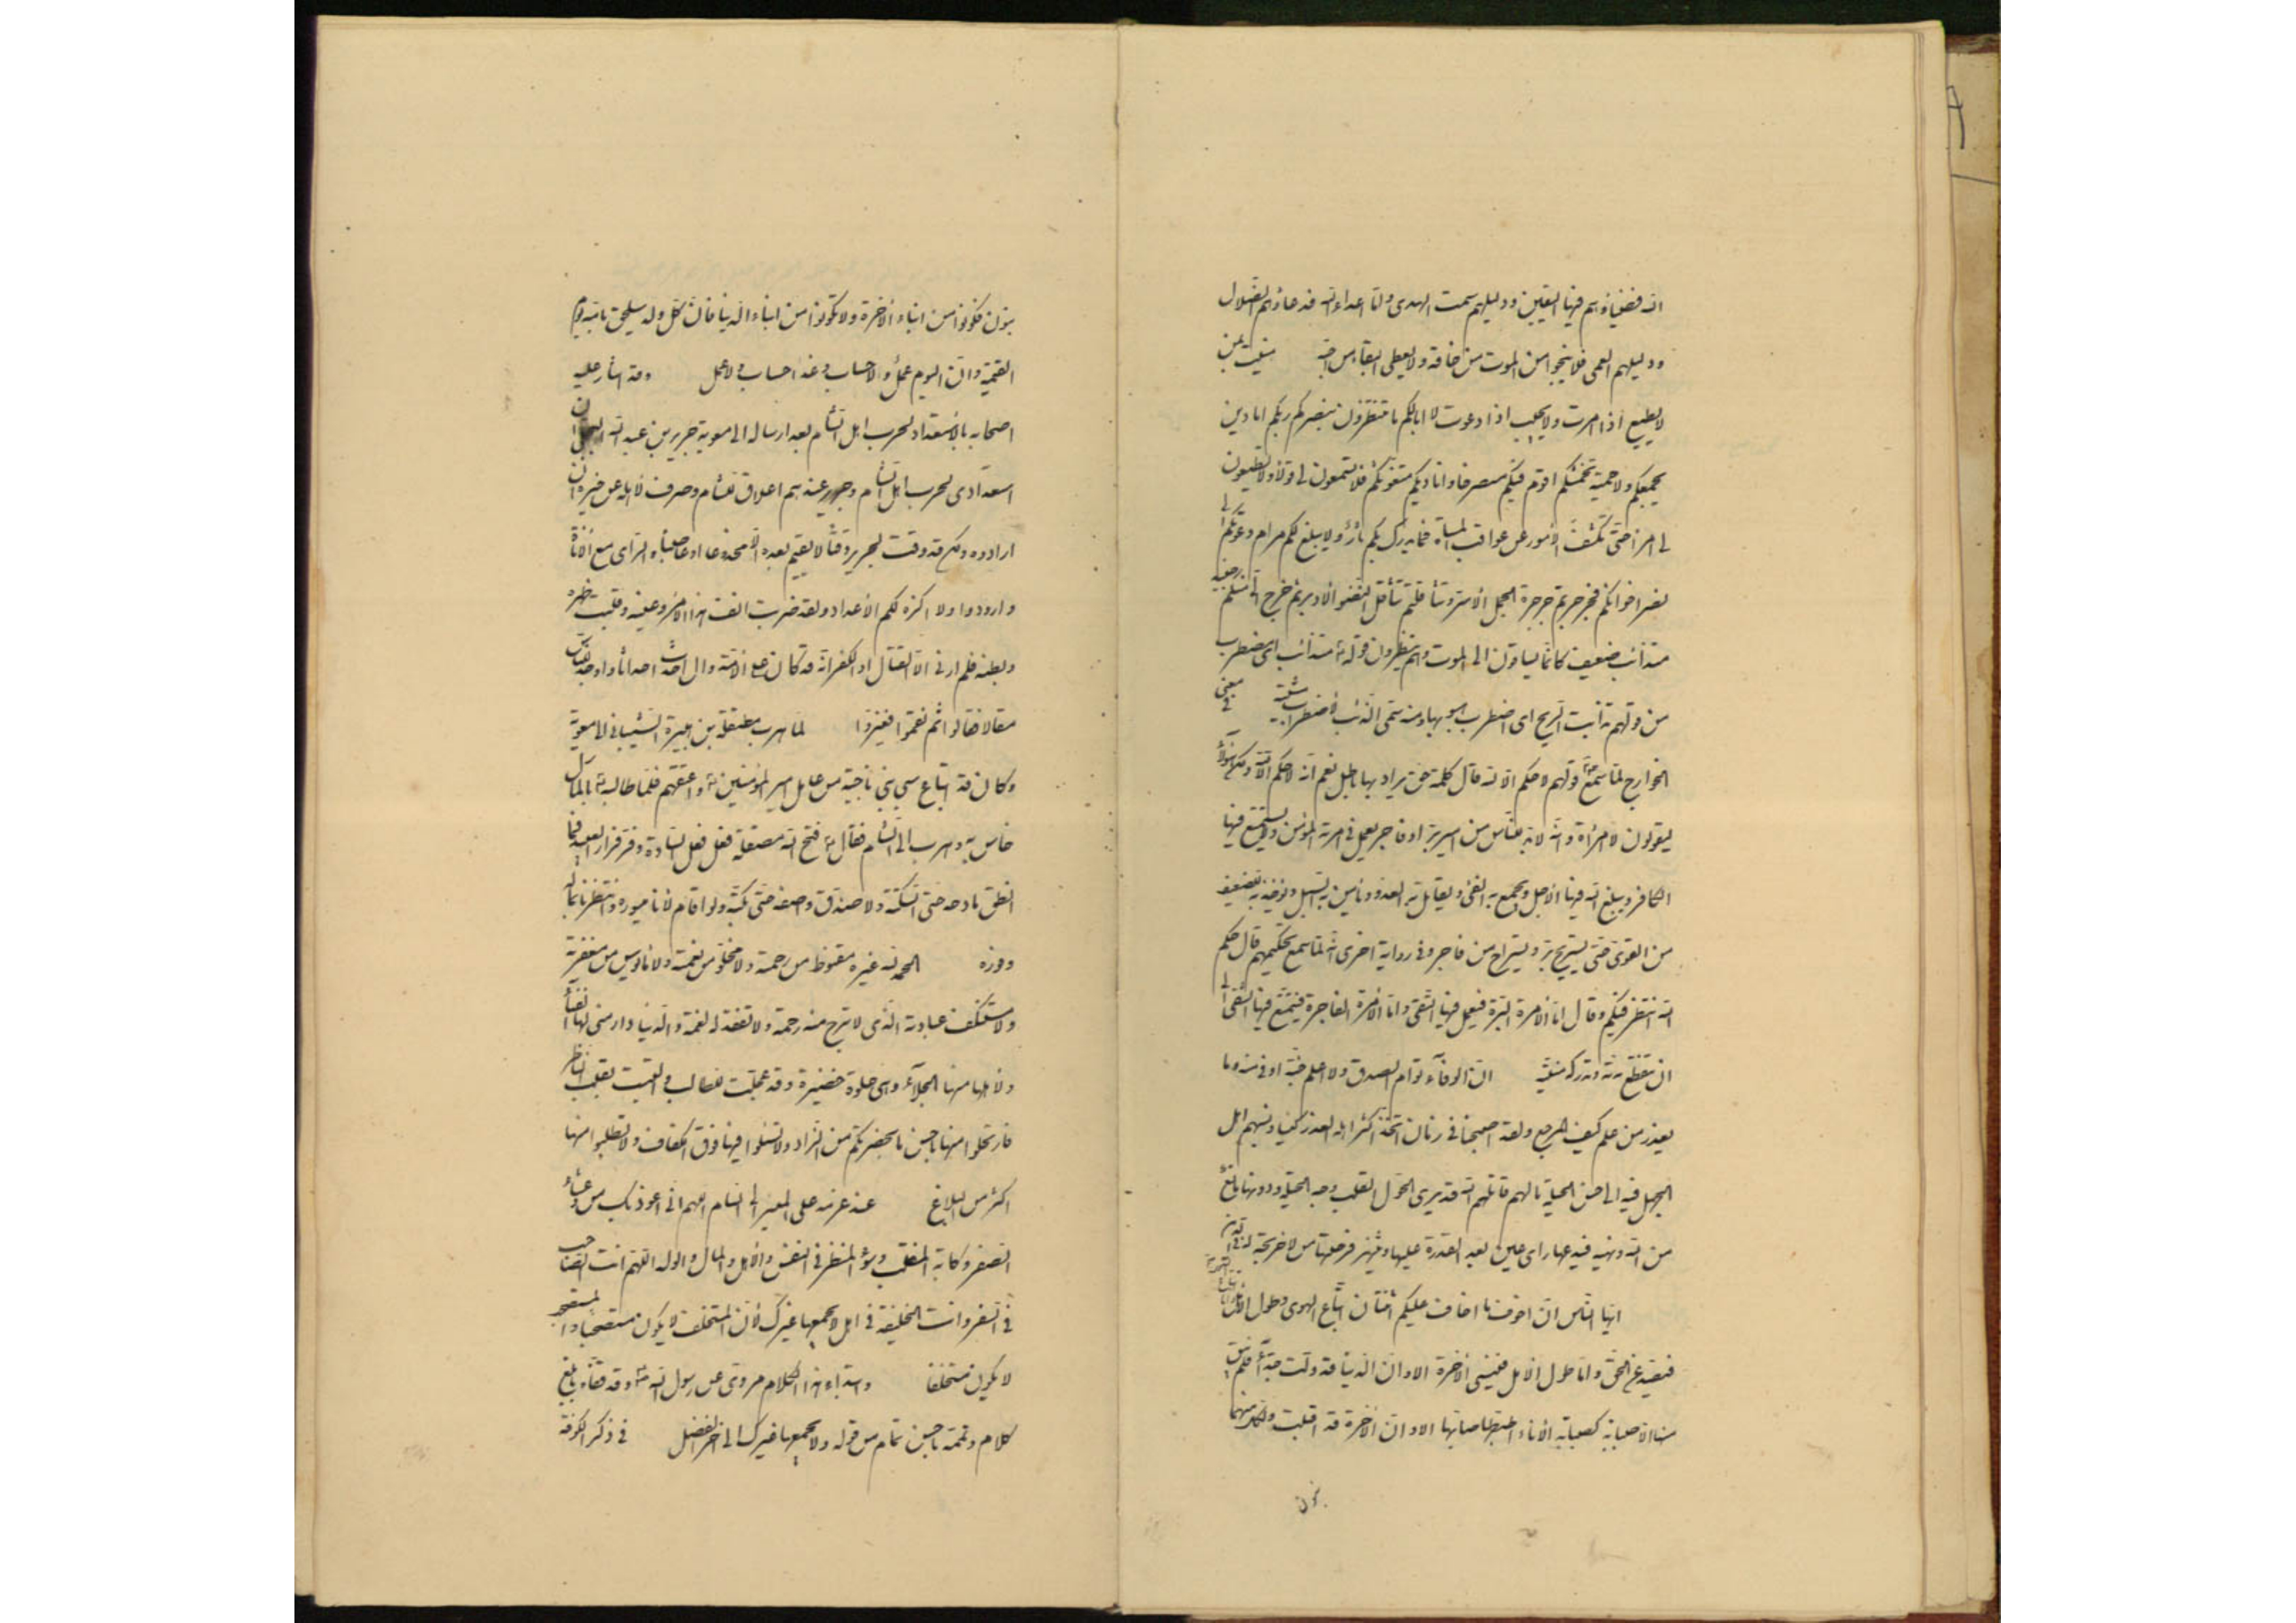 الله فضياؤهم فيها اليقين ودليلهم سمت الهدى ولما اعداء الله فدعاؤهم الضلال
ودليلهم العمى فلا ينجوا من الموت من خافه ولا يعطى البقاء من احبه منيت بمن
لا يطيع اذا امرت ولا يجيب اذا دعوت لا ابالكم ما تنتظرون بنصركم ربكم اما دين
يجمعكم ولا حمية تحمشكم اقوم فيكم مستصرخا واناديكم متغوثا فلا تسمعون لى قولا ولا تطيعون
لى امرا حتى تكشف الامور عن عواقب المساة فما يدرك بكم ثار ولا يبلغ بكم مرام دعوتكم الى
نصر اخوانكم فجرجرتم جرجرة الجمل الاسر وتثاقلتم تثاقل النضو الادبر ثم خرج الى منكم جنيد
متذائب ضعيف كانما يساقون الى الموت وهم ينظرون قوله متذائب اى مضطرب
من قولهم تذائبت الريح اى اضطرب هبوبها ومنه سمى الذئب لاضطراب مشيته فى معنى
الخوارج لما سمع قولهم لا حكم الا لله قال كلمة حق يراد بها باطل نعم انه لا حكم الا لله ولكن هؤلاء
يقولون لا امرة وانه لابد للناس من امير بر او فاجر يعمل فى امرته المؤمن ويستمتع فيها
الكافر ويبلغ الله فيها الاجل ويجمع به الفئ ويقاتل به العدو وتامن به السبل ويؤخذ به للضعيف
من القوى حتى يستريح بر ويستراح من فاجر وفى رواية اخرى انه لما سمع تحكيمهم قال حكم
الله انتظر فيكم وقال اما الامرة البرة فيعمل فيها التقى واما الامرة الفاجرة فيتمتع فيها الشقى الى
ان تنقطع مدته وتدركه منيته ان الوفاء توام الصدق ولا اعلم جنة اوفى منه وما
يغدر من علم كيف المرجع ولقد اصبحنا فى زمان اتخذ اكثر اهله الغدر كيسا ونسبهم اهل
الجهل فيه الى حسن الحيلة مالهم قاتلهم الله قد يرى الحول القلب وجه الحيلة ودونها مانع
من الله ونهيه فيدعها راى عين بعد القدرة عليها وينتهز فرصتها من لا حريجة له فى الدين
ايها الناس ان اخوف ما اخاف عليكم اثنان اتباع الهوى وطول الامل
فيصد عن الحق واما طول الامل فينسى الاخرة الا وان الدنيا قد ولت حذاء فلم يبق
منها الا صبابة كصبابة الاناء اصطبها صابها الا وان الاخرة قد اقبلت ولكل منهما
بنون
بنون فكونوا من ابناء الاخرة ولا تكونوا من ابناء الدنيا فان كل ولد سيلحق بامه يوم
القيمة وان اليوم عمل ولا حساب وغدا حساب ولا عمل وقد اشار عليه
اصحابه بالاستعداد لحرب اهل الشام بعد ارساله الى معوية جرير بن عبد الله البجلى ان
استعدادى لحرب اهل الشام وجرير عندهم اغلاق للشام وصرف لاهله عن خير ان
ارادوه ولكن قد وقت لجرير وقتا لا يقيم بعده الا مخدوعا او عاصيا والراى مع الاناة
فارودوا ولا اكره لكم الاعداد ولقد ضربت انف هذا الامر وعينه وقلبت ظهره
وبطنه فلم ار فى الا القتال او الكفر انه قد كان على الامة وال احدث احداثا واوجد للناس
مقالا فقالوا ثم نقموا فغيروا لما هرب مصقلة بن هبيرة الشيبانى الى معوية
وكان قد ابتاع سبى بنى ناجية من عامل امير المؤمنين واعتقهم فلما طالبه بالمال
خاس به وهرب الى الشام فقال قبح الله مصقلة فعل فعل السادة وفر فرار العبيد فما
انطق مادحه حتى اسكته ولا صدق واصفه حتى بكته ولو اقام لاخذنا ميسوره وانتظرنا بماله
وفوره الحمد لله غير مقنوط من رحمته ولا مخلو من نعمته ولا مايوس من مغفرته
ولا مستنكف عبادته الذى لا تبرح منه رحمة ولا تفقد له نعمة والدنيا دار منى لها الفناء
ولاهلها منها الجلاء وهى حلوة خضرة وقد عجلت للطالب والتبست بقلب الناظر
فارتحلوا منها باحسن ما بحضرتكم من الزاد ولا تسئلوا فيها فوق الكفاف ولا تطلبوا منها
اكثر من البلاغ عند عزمه على المسير الى الشام اللهم انى اعوذ بك من وعثاء
السفر وكابة المنقلب وسوء المنظر فى النفس والاهل والمال والولد اللهم انت الصاحب
فى السفر وانت الخليفة فى الاهل ولا يجمعهما غيرك لان المستخلف لا يكون مستصحبا والمستصحب
لا يكون مستخلفا وابتداء هذا الكلام مروى عن رسول الله وقد قفاه بابلغ
كلام وتممه باحسن تمام من قوله ولا يجمعهما غيرك الى اخر الفصل فى ذكر الكوفة